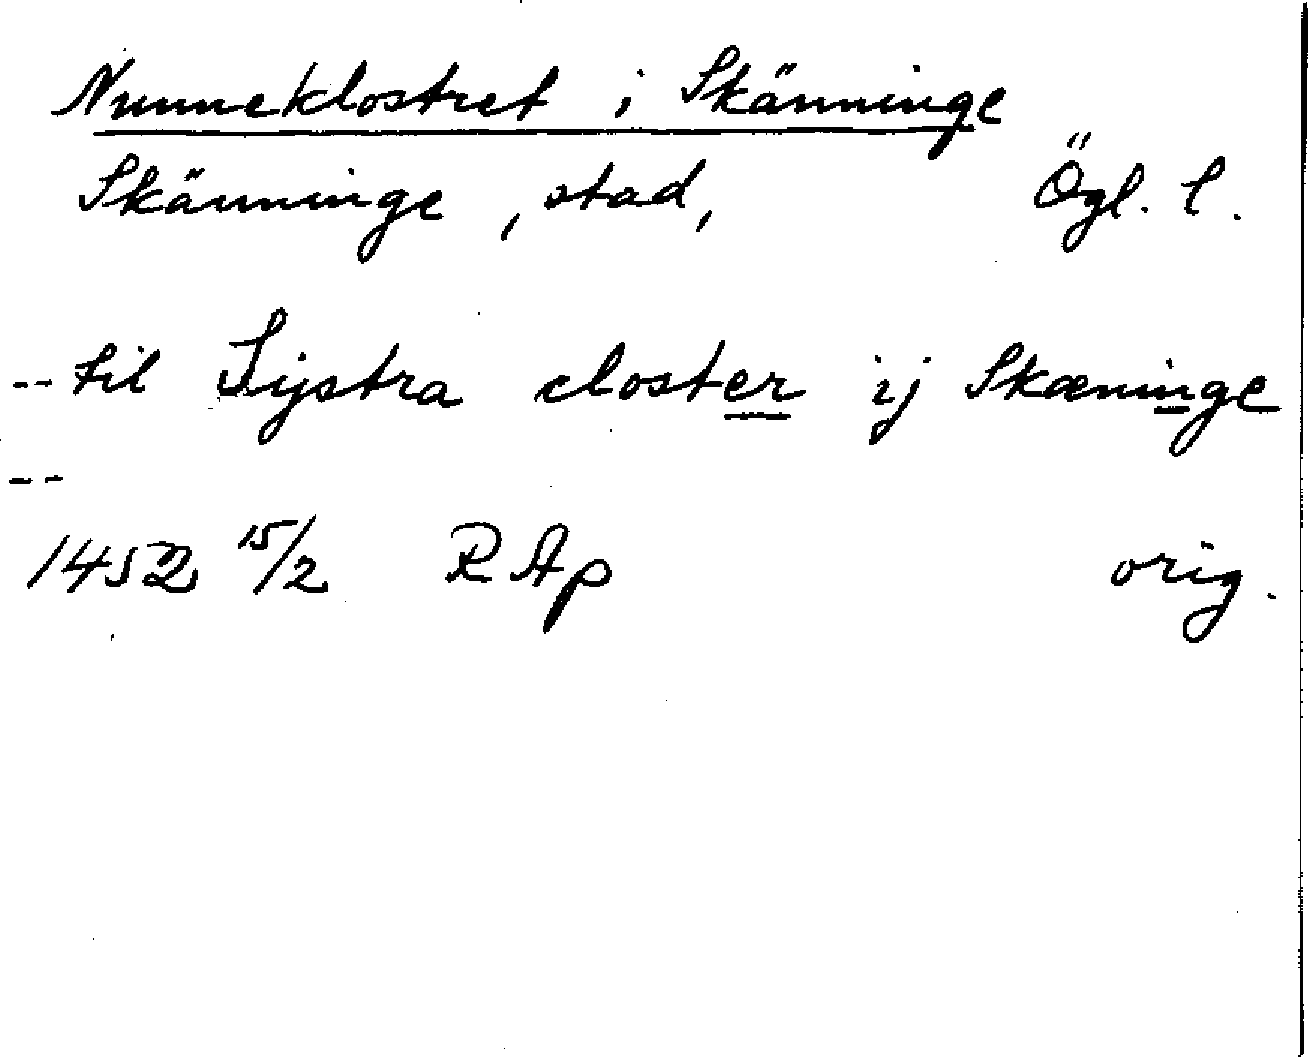 Nunneklostret i Skänninge
Skänninge, stad, Ögl. l.
-- til Sijstra closter ij Skæninge
--
1452 15/2 RAp orig.